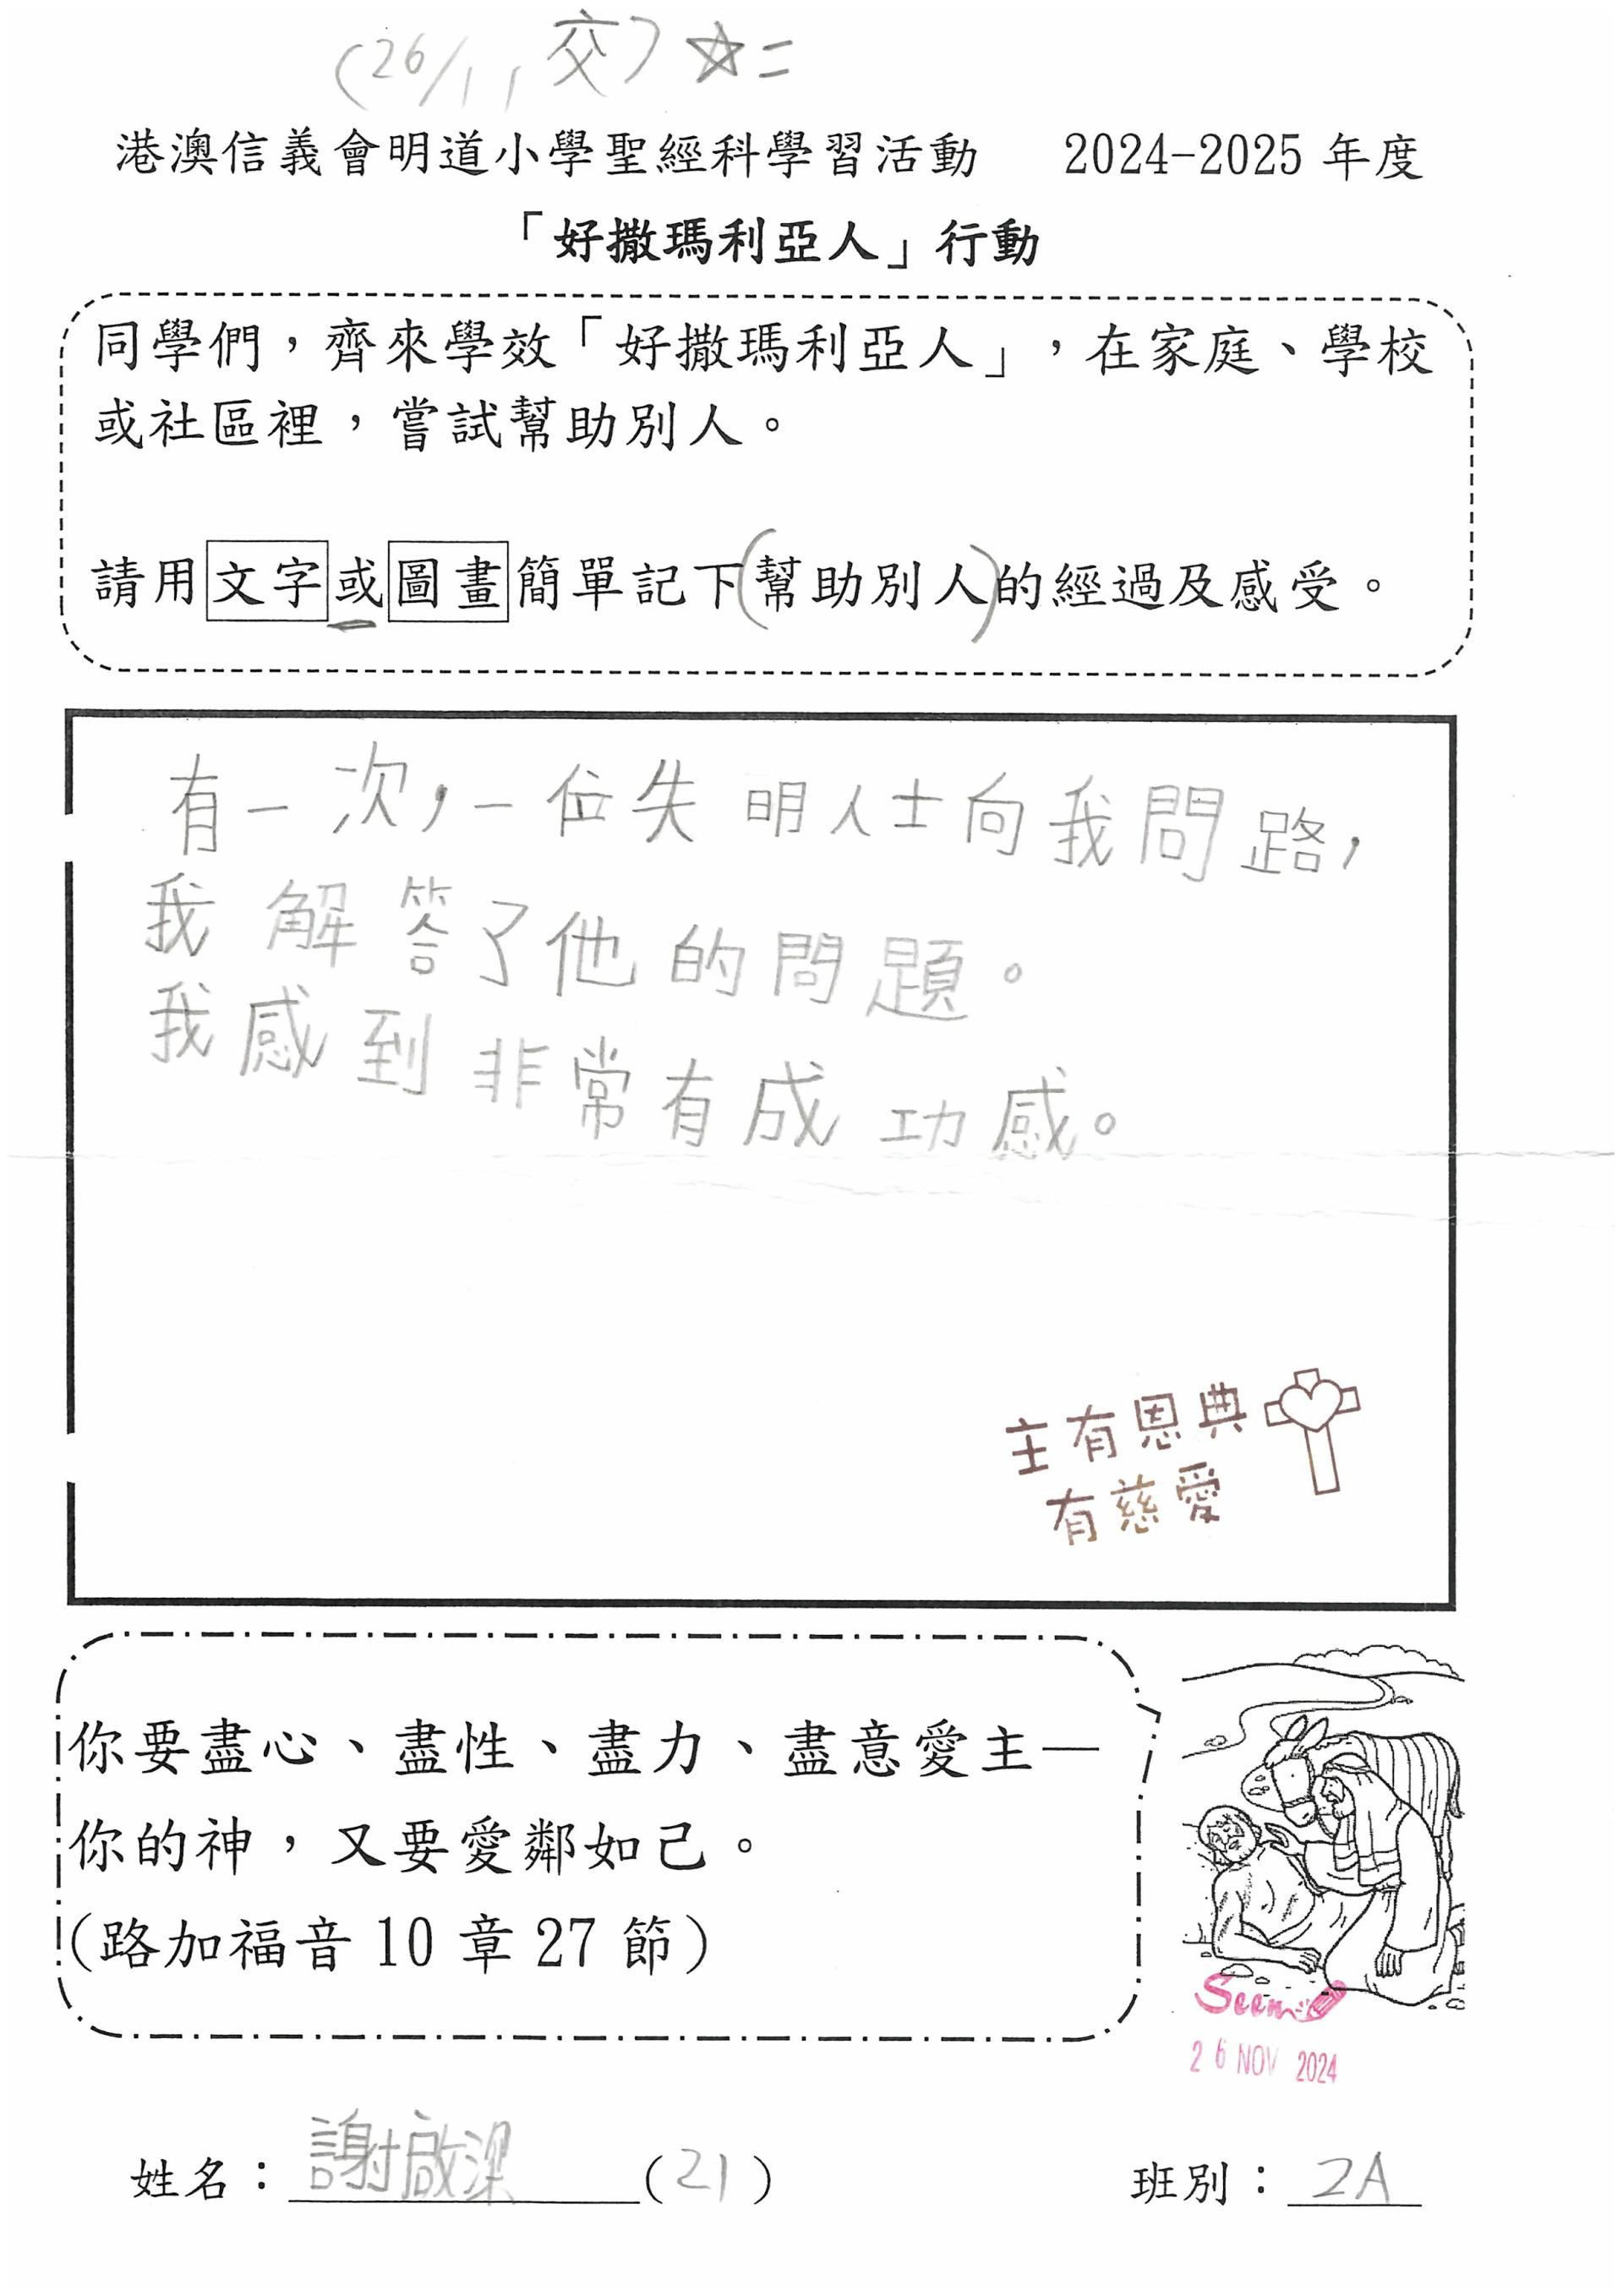 (26/11交)☆=
港澳信義會明道小學聖經科學習活動 2024-2025 年度
「好撒瑪利亞人」行動
同學們，齊來學效「好撒瑪利亞人」，在家庭、學校
或社區裡，嘗試幫助別人。
請用文字或圖畫簡單記下(幫助別人)的經過及感受。
有一次，一位失明人士向我問路，
我解答了他的問題。
我感到非常有成功感。
主有恩典
有慈愛
你要盡心、盡性、盡力、盡意愛主—
你的神，又要愛鄰如己。
(路加福音 10 章 27 節)
Seen
26 NOV 2024
姓名：謝啟梁(21) 班別：2A